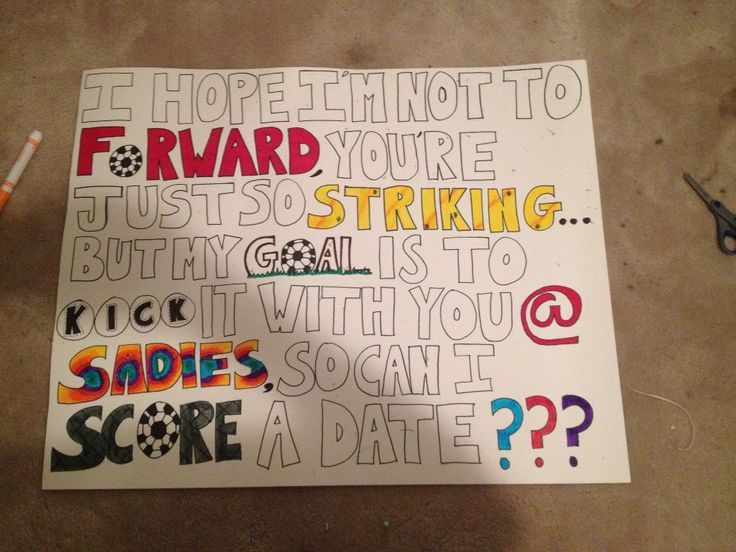 I HOPE I'M NOT TO
FORWARD, YOU'RE
JUST SO STRIKING...
BUT MY GOAL IS TO
KICK IT WITH YOU @
SADIES, SO CAN I
SCORE A DATE???